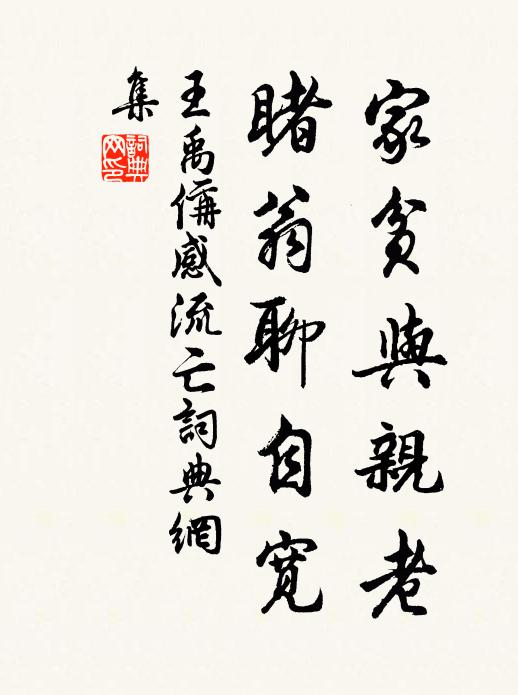 家貧與親老
睹翁聊自寬
王禹偁感流亡詞典網
集
詞典
網印